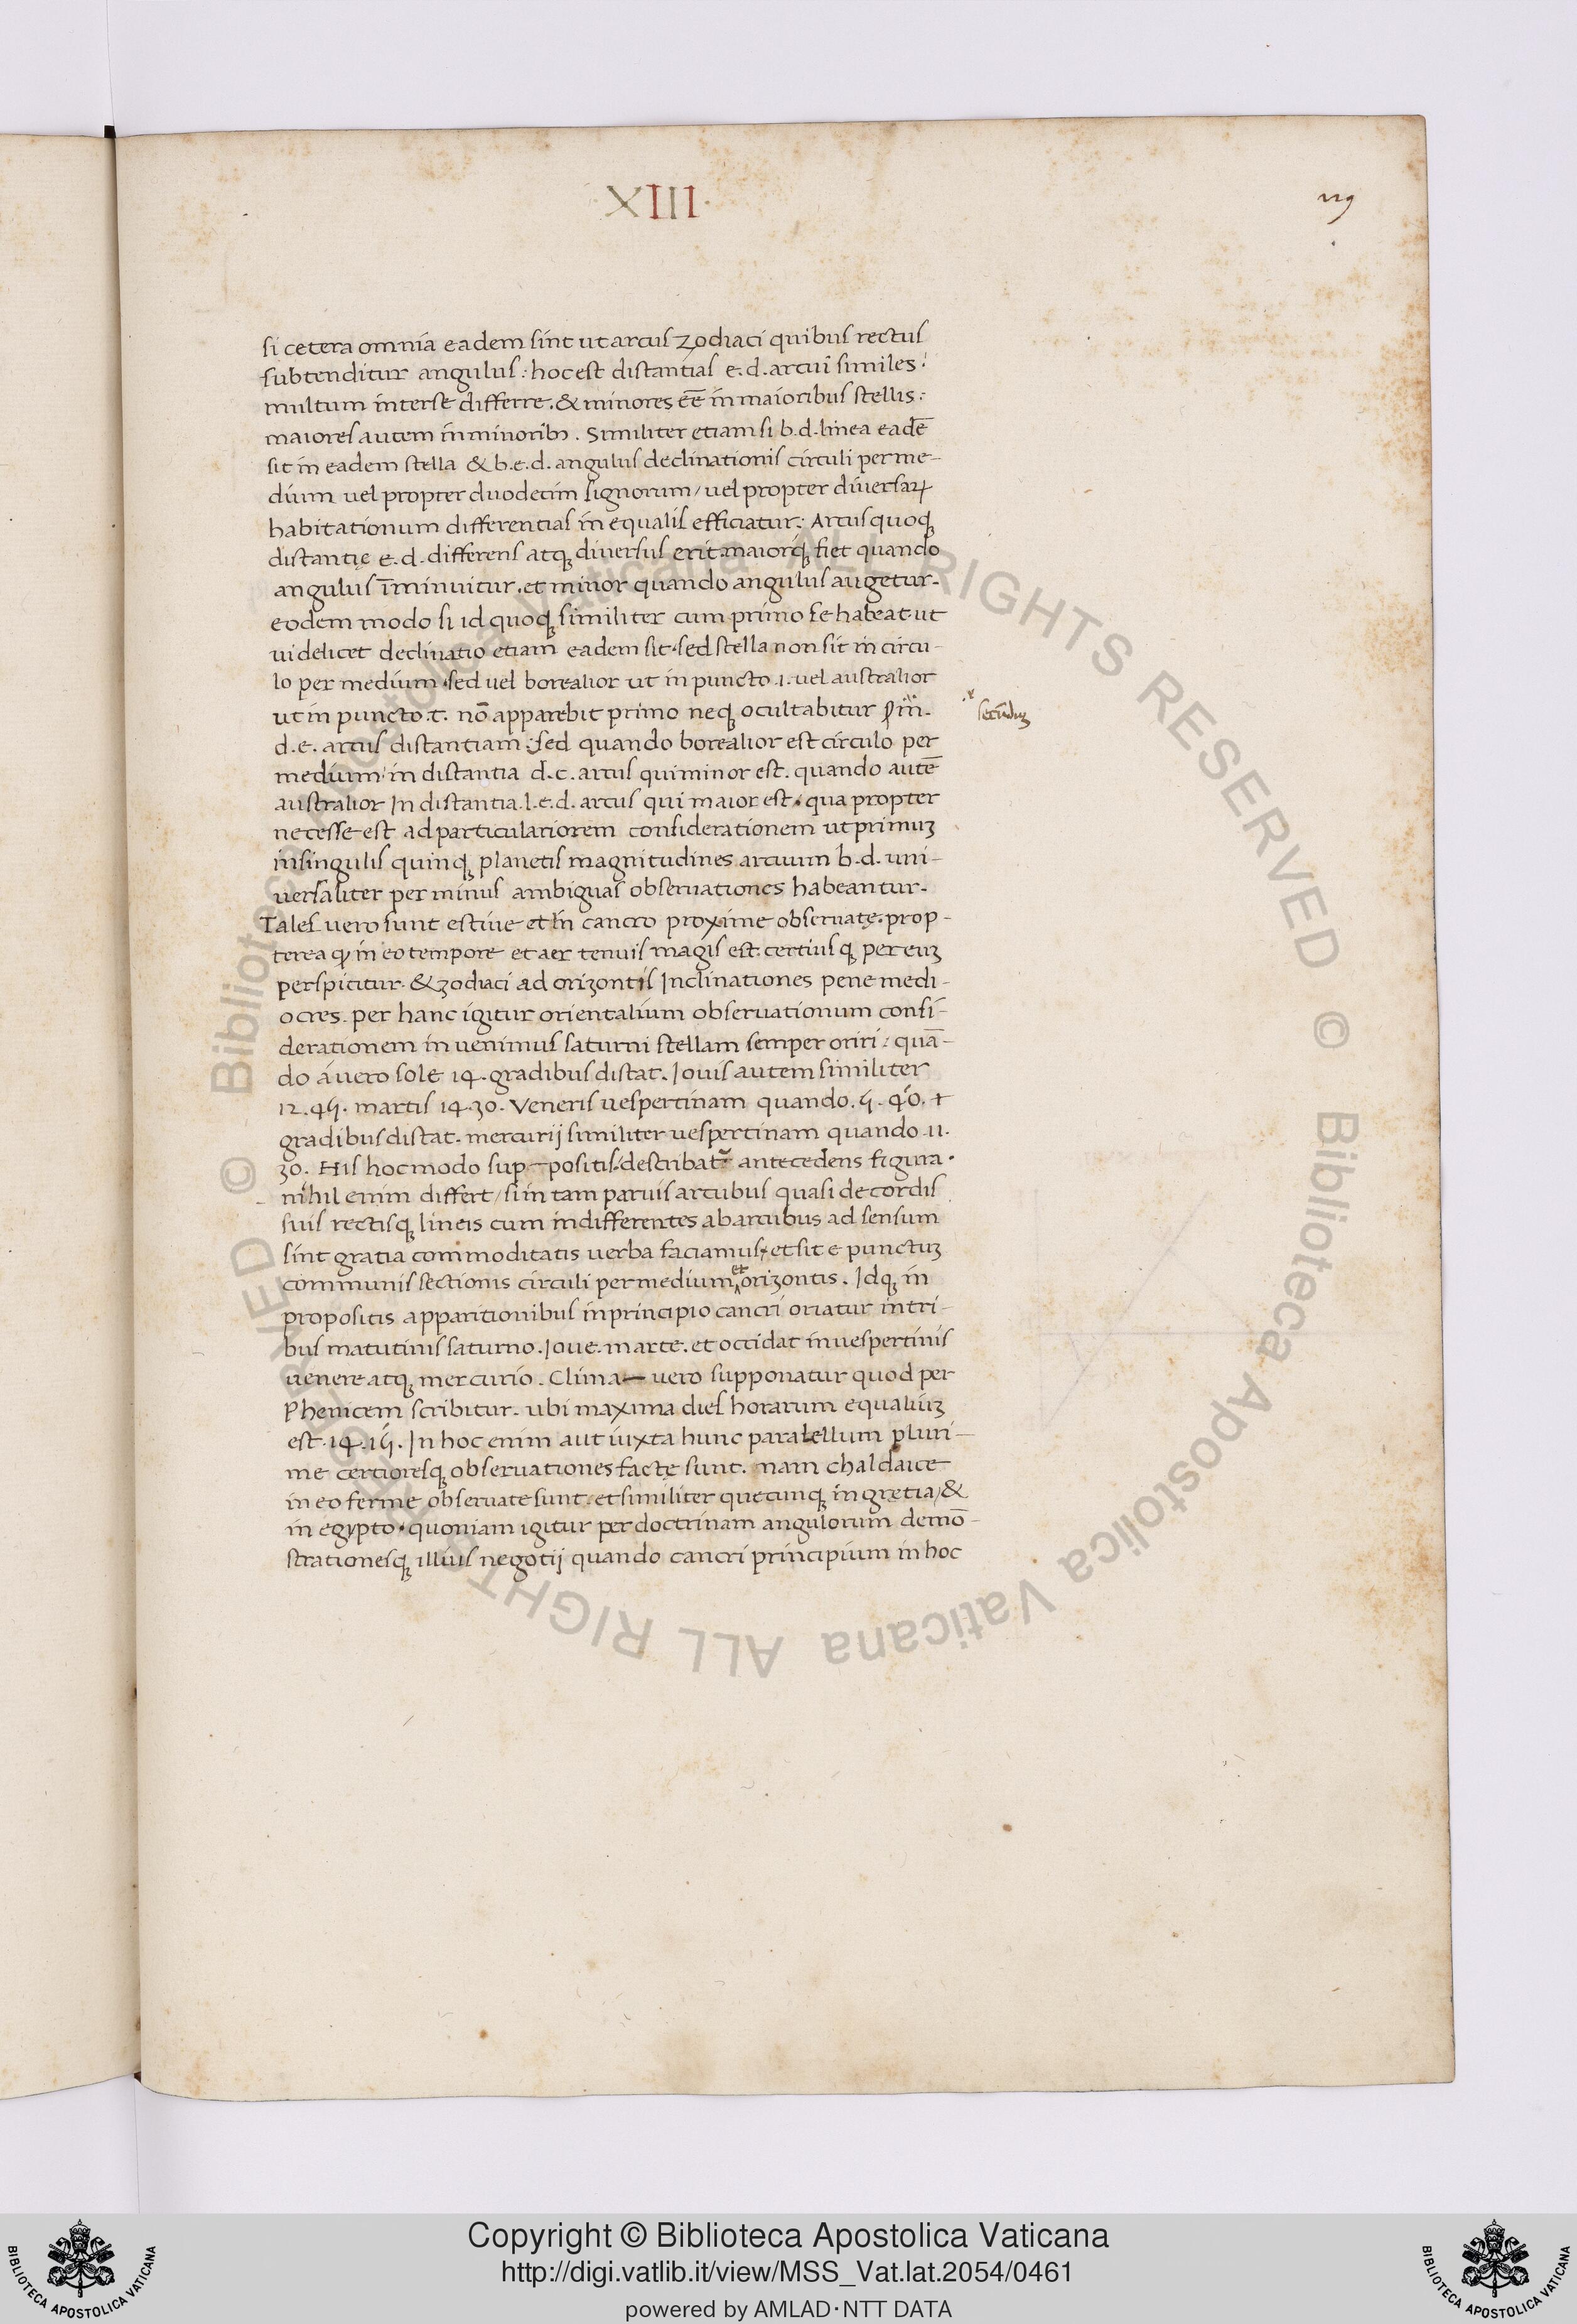 XIII
119
si cetera omnia eadem sint ut arcus zodiaci quibus rectus
subtenditur angulus: hoc est distantias e. d. arcui similes:
multum inter se differre. & minores eē in maioribus stellis:
maiores autem in minoribꝫ. Similiter etiam si b. d. linea eadē
sit in eadem stella & b. e. d. angulus declinationis circuli per me-
dium uel propter duodecim signorum / uel propter diuersaꝝ
habitationum differentias inequalis efficiatur. Arcus quoqꝫ
distantię e. d. differens atqꝫ diuersus erit. maiorqꝫ fiet quando
angulus īminuitur. et minor quando angulus augetur.
eodem modo si id quoqꝫ similiter cum primo se habeat. ut
uidelicet declinatio etiam eadem sit. sed stella non sit in circu-
lo per medium. sed uel borealior ut in puncto .i. uel australior
ut in puncto .t. nō apparebit primo neqꝫ ocultabitur
secūduꝫ
d. e. arcus distantiam: sed quando borealior est circulo per
medium in distantia d. c. arcus qui minor est. quando autē
australior In distantia .l. e. d. arcus qui maior est. qua propter
necesse est ad particulariorem considerationem ut primuꝫ
in singulis quinqꝫ planetis magnitudines arcuum b. d. uni-
uersaliter per minus ambiguas obseruationes habeantur.
Tales uero sunt estiue et in cancro proxime obseruatę. prop-
terea ꝙ in eo tempore et aer tenuis magis est. certiusqꝫ per euꝫ
perspicitur. & zodiaci ad orizontis Inclinationes pene medi-
ocres. per hanc igitur orientalium obseruationum consi-
derationem inuenimus saturni stellam semper oriri: quā-
do á uero sole 14. gradibus distat. Iouis autem similiter
12. 45. martis 14. 30. Veneris uespertinam quando. 5. 40.
gradibus distat. mercurij similiter uespertinam quando .11.
30. His hoc modo suppositis: describatʳ antecedens figura.
nihil enim differt / si in tam paruis arcubus quasi de cordis
suis rectisqꝫ lineis cum indifferentes ab arcubus ad sensum
sint gratia commoditatis uerba faciamus. et sit e punctuꝫ
communis sectionis circuli per medium et orizontis. Idqꝫ in
propositis apparitionibus in principio cancri oriatur in tri-
bus matutinis saturno. Ioue. marte. et occidat in uespertinis
uenere atqꝫ mercurio. Clima uero supponatur quod per
Phenicem scribitur. ubi maxima dies horarum equaliuꝫ
est. 14. 15. In hoc enim aut iuxta hunc paralellum pluri-
me certioresqꝫ obseruationes factę sunt. nam chaldaice
in eo ferme obseruate sunt. et similiter quecunqꝫ in gręcia / &
in egypto. quoniam igitur per doctrinam angulorum demō-
strationesqꝫ illius negotij quando cancri principium in hoc
Copyright © Biblioteca Apostolica Vaticana
http://digi.vatlib.it/view/MSS_Vat.lat.2054/0461
powered by AMLAD·NTT DATA
BIBLIOTECA APOSTOLICA VATICANA
BIBLIOTECA APOSTOLICA VATICANA
© Biblioteca Apostolica Vaticana ALL RIGHTS RESERVED © Biblioteca Apostolica Vaticana ALL RIGHTS RESERVED